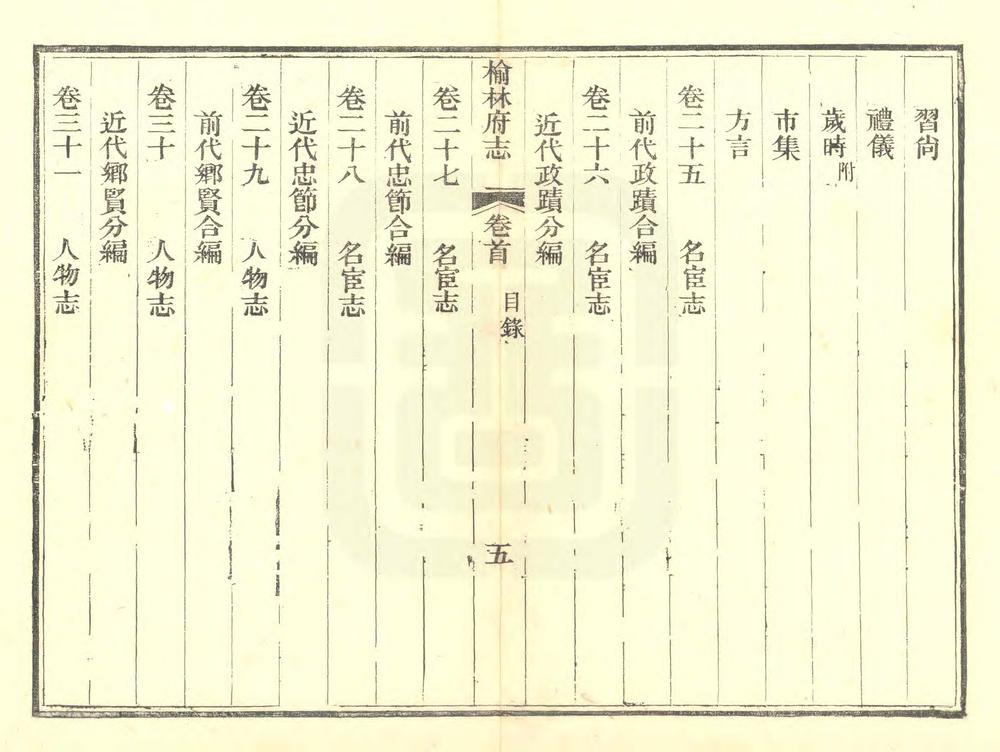 習尚
禮儀
歲時附
市集
方言
卷二十五 名宦志
前代政蹟合編
卷二十六 名宦志
近代政蹟分編
榆林府志 卷首 目錄 五
卷二十七 名宦志
前代忠節合編
卷二十八 名宦志
近代忠節分編
卷二十九 人物志
前代鄉賢合編
卷三十 人物志
近代鄉賢分編
卷三十一 人物志